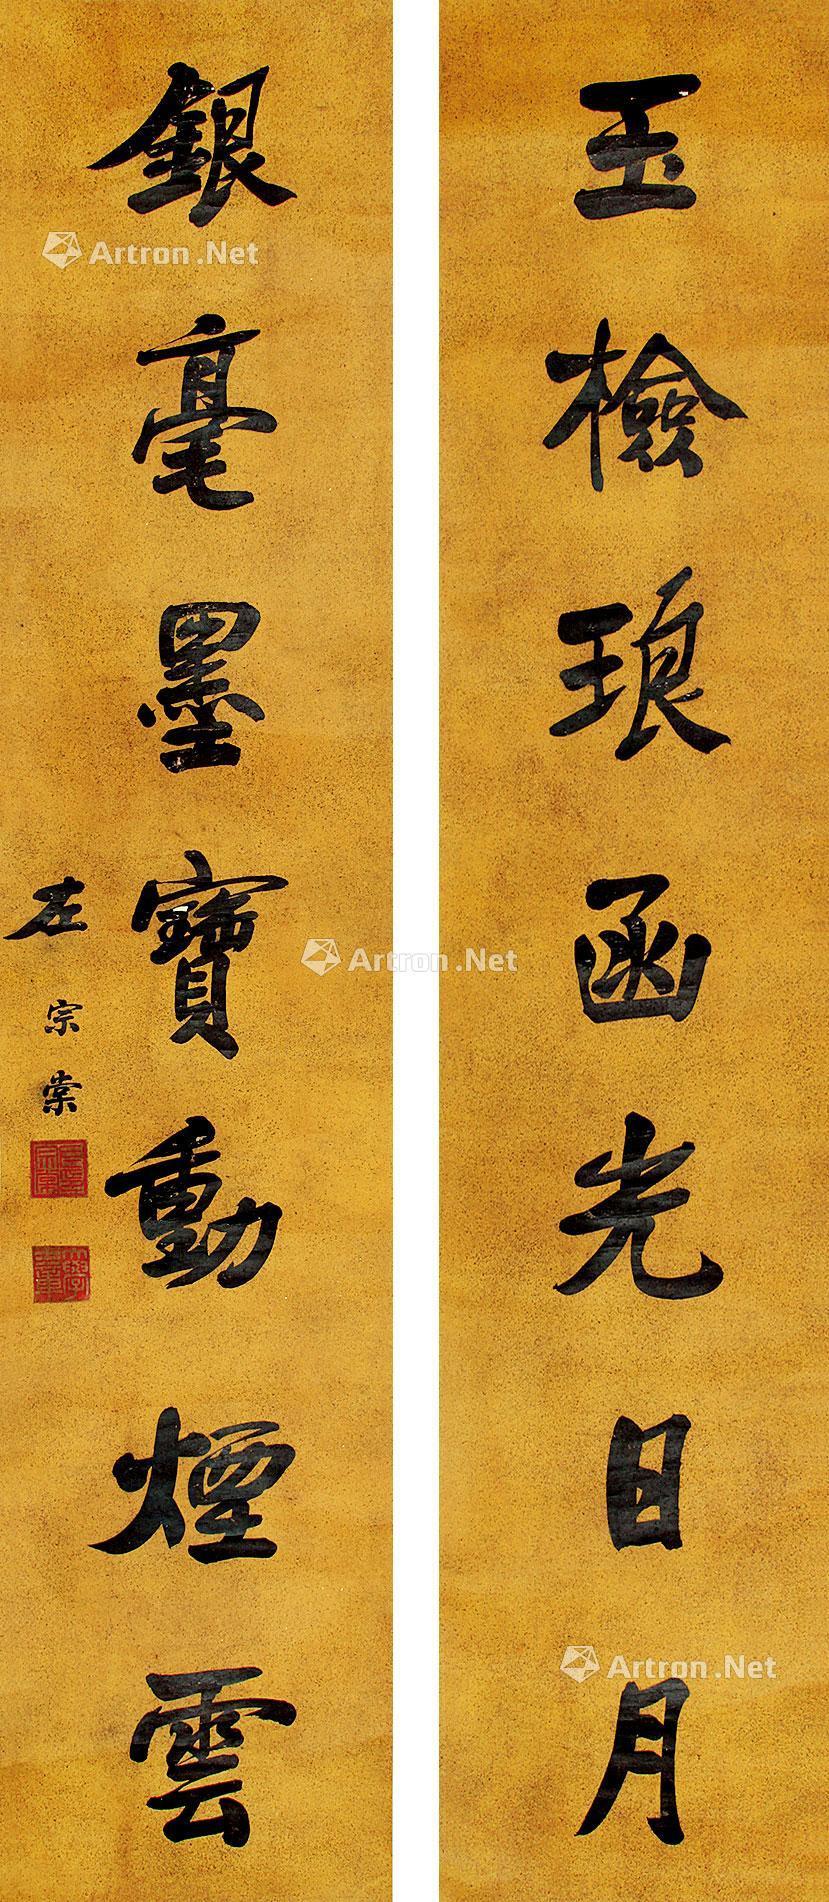 玉檢琅函光日月
銀毫墨寶動煙雲
左宗棠
Artron.Net
Artron.Net
Artron.Net